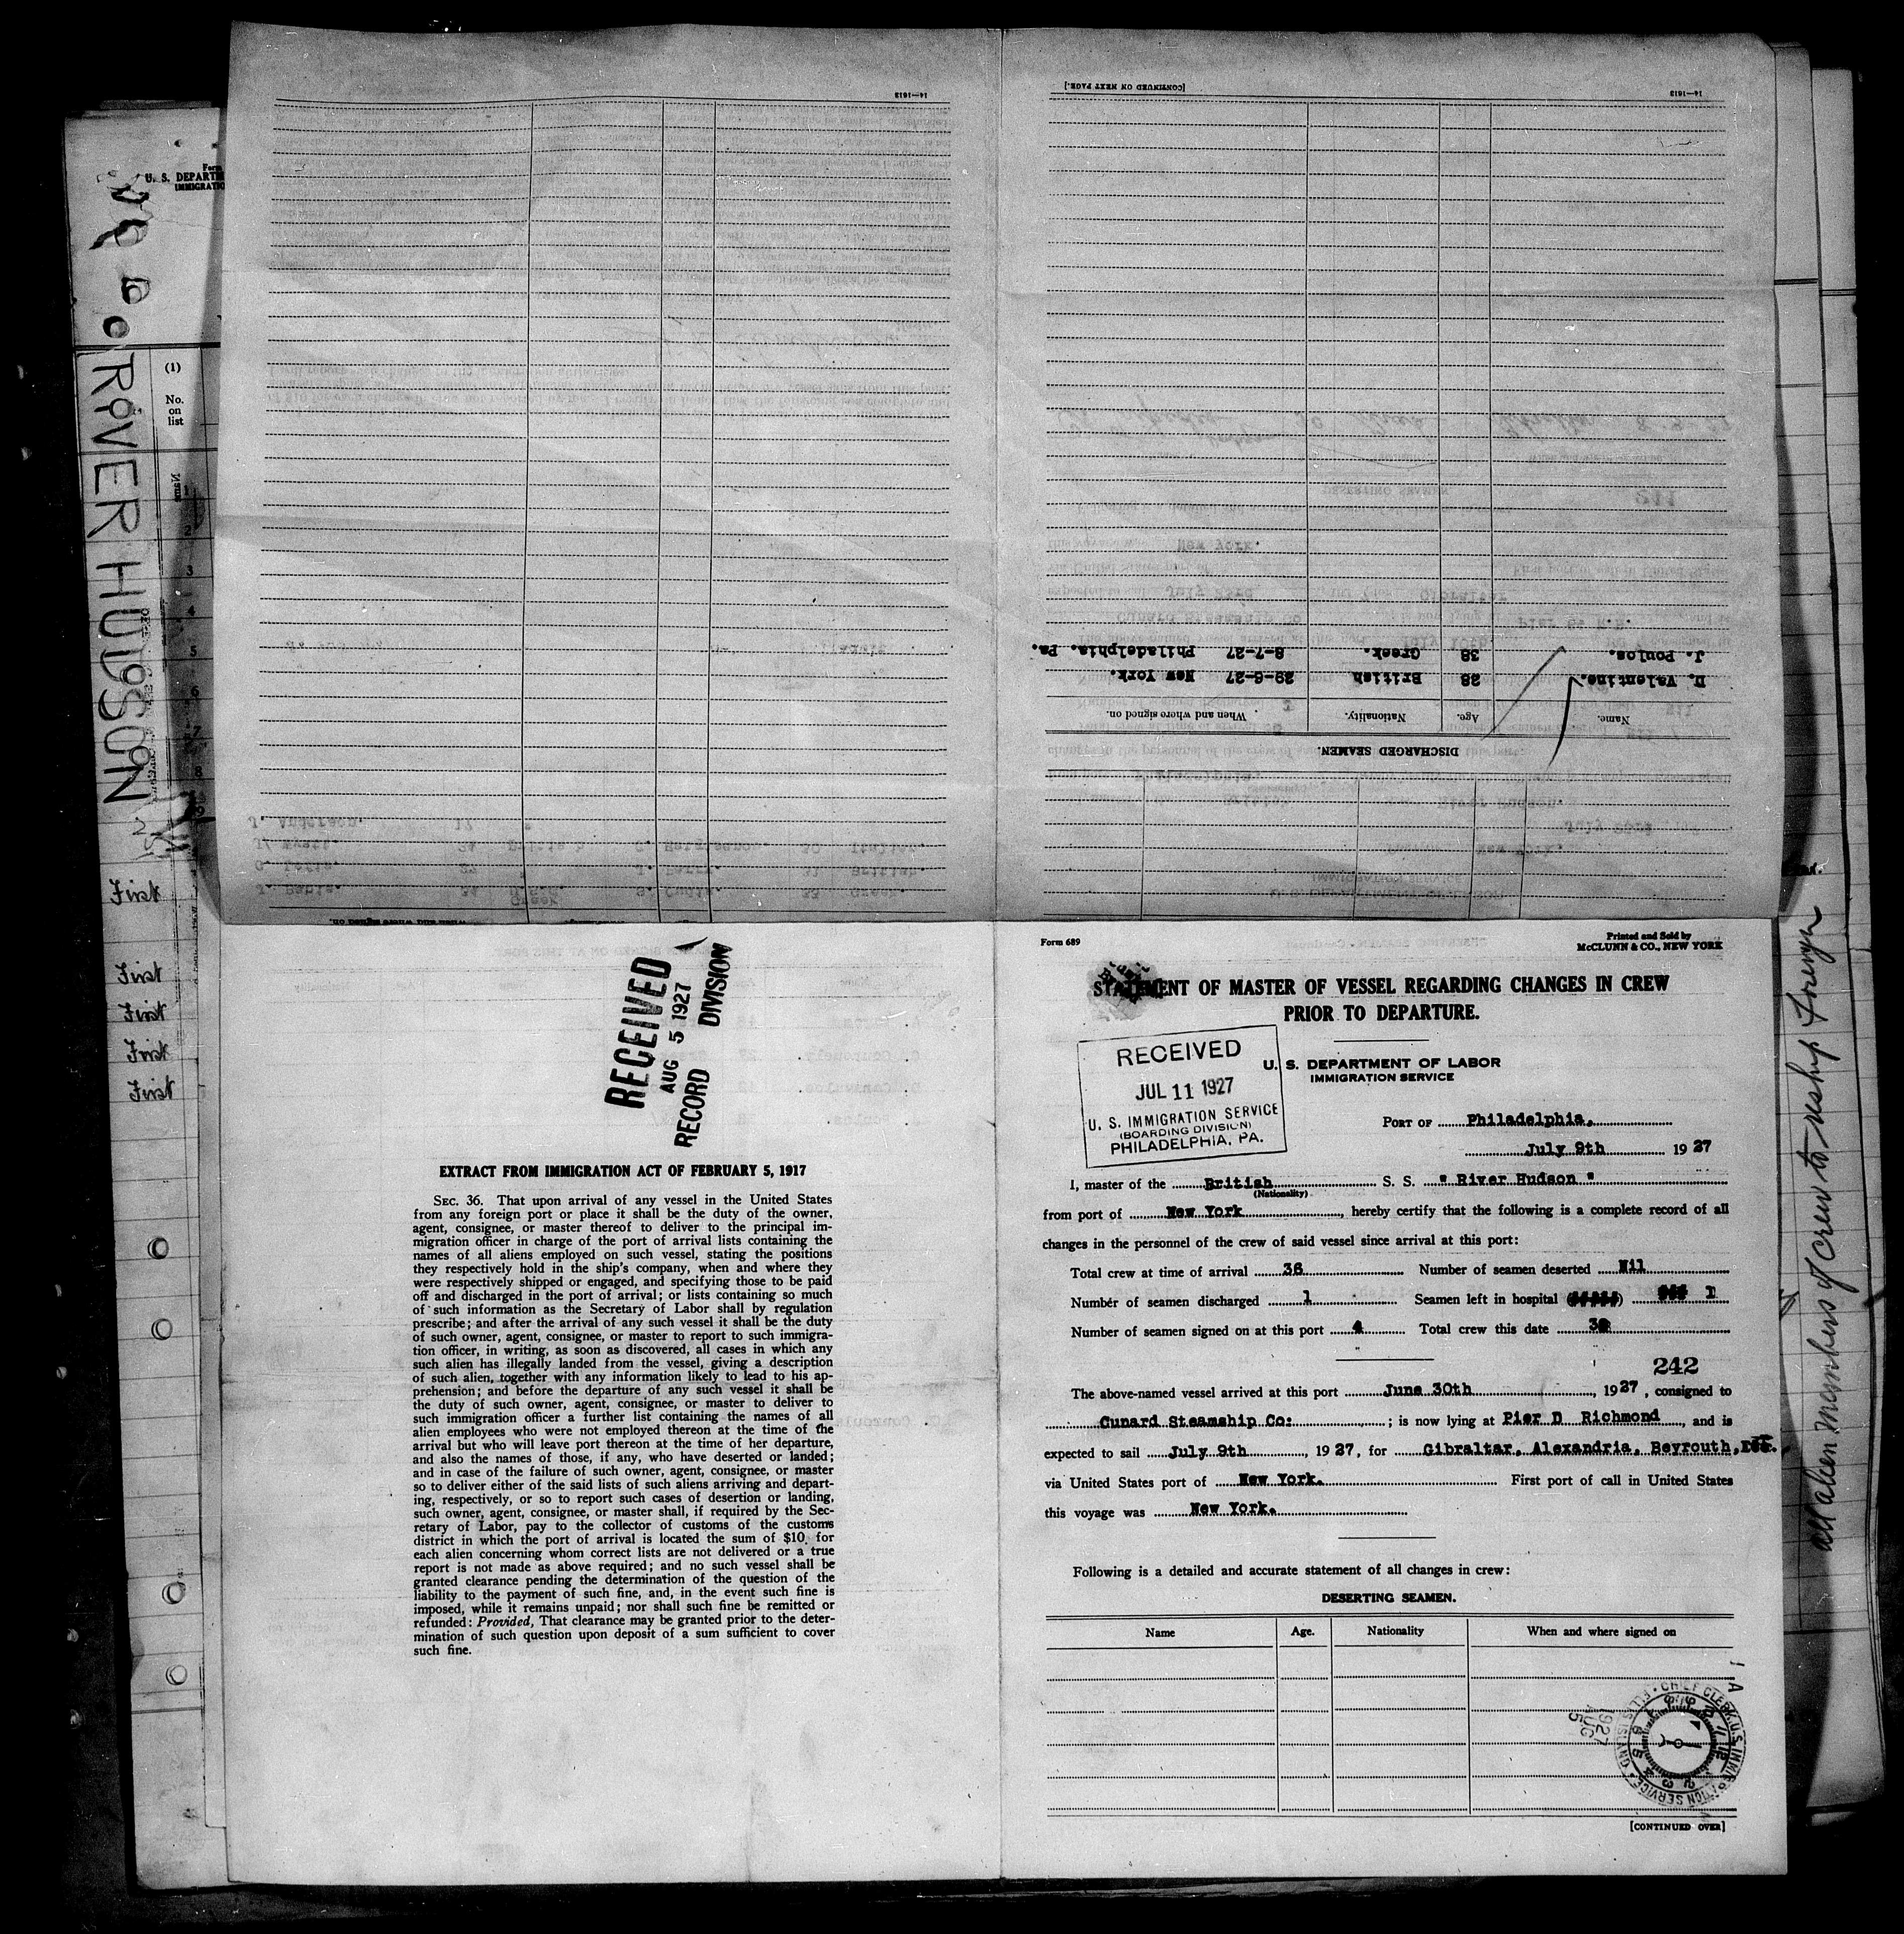 Form
U. S. DEPARTM
IMMIGRATIO
RIVER HUDSON
(1)
No.
on
list
1
2
3
4
5
6
7
8
First
First
First
First
First
14—1613
[CONTINUED ON NEXT PAGE.]
14—1613
DISCHARGED SEAMEN.
Name. Age. Nationality. When and where signed on.
D. Valentine. 28 British 29-6-27 New York.
J. Poulos. 38 Greek. 8-7-27 Philadelphia. Pa.
RECEIVED
AUG 5 1927
RECORD DIVISION
EXTRACT FROM IMMIGRATION ACT OF FEBRUARY 5, 1917
SEC. 36. That upon arrival of any vessel in the United States
from any foreign port or place it shall be the duty of the owner,
agent, consignee, or master thereof to deliver to the principal im-
migration officer in charge of the port of arrival lists containing the
names of all aliens employed on such vessel, stating the positions
they respectively hold in the ship's company, when and where they
were respectively shipped or engaged, and specifying those to be paid
off and discharged in the port of arrival; or lists containing so much
of such information as the Secretary of Labor shall by regulation
prescribe; and after the arrival of any such vessel it shall be the duty
of such owner, agent, consignee, or master to report to such immigra-
tion officer, in writing, as soon as discovered, all cases in which any
such alien has illegally landed from the vessel, giving a description
of such alien, together with any information likely to lead to his ap-
prehension; and before the departure of any such vessel it shall be
the duty of such owner, agent, consignee, or master to deliver to
such immigration officer a further list containing the names of all
alien employees who were not employed thereon at the time of the
arrival but who will leave port thereon at the time of her departure,
and also the names of those, if any, who have deserted or landed;
and in case of the failure of such owner, agent, consignee, or master
so to deliver either of the said lists of such aliens arriving and depart-
ing, respectively, or so to report such cases of desertion or landing,
such owner, agent, consignee, or master shall, if required by the Sec-
retary of Labor, pay to the collector of customs of the customs
district in which the port of arrival is located the sum of $10 for
each alien concerning whom correct lists are not delivered or a true
report is not made as above required; and no such vessel shall be
granted clearance pending the determination of the question of the
liability to the payment of such fine, and, in the event such fine is
imposed, while it remains unpaid; nor shall such fine be remitted or
refunded: Provided, That clearance may be granted prior to the deter-
mination of such question upon deposit of a sum sufficient to cover
such fine.
Form 689
Printed and Sold by
McCLUNN & CO., NEW YORK
STATEMENT OF MASTER OF VESSEL REGARDING CHANGES IN CREW
PRIOR TO DEPARTURE.
RECEIVED
JUL 11 1927
U. S. IMMIGRATION SERVICE
(BOARDING DIVISION)
PHILADELPHIA, PA.
U. S. DEPARTMENT OF LABOR
IMMIGRATION SERVICE
PORT OF Philadelphia,
July 9th 1927
I, master of the British S. S. " River Hudson "
(Nationality)
from port of New York, hereby certify that the following is a complete record of all
changes in the personnel of the crew of said vessel since arrival at this port:
Total crew at time of arrival 36 Number of seamen deserted Nil
Number of seamen discharged 1 Seamen left in hospital 1
Number of seamen signed on at this port 4 Total crew this date
242
The above-named vessel arrived at this port June 30th, 1927, consigned to
Cunard Steamship Co: ; is now lying at Pier D Richmond, and is
expected to sail July 9th, 1927, for Gibraltar, Alexandria, Beyrouth,
via United States port of New York. First port of call in United States
this voyage was New York.
Following is a detailed and accurate statement of all changes in crew:
DESERTING SEAMEN.
Name Age. Nationality When and where signed on
1927
AUG
5
CHIEF CLERK U.S. IMMIGRATION SERVICE • ELLIS ISLAND
[CONTINUED OVER]
All alien members of crew to reship Foreign